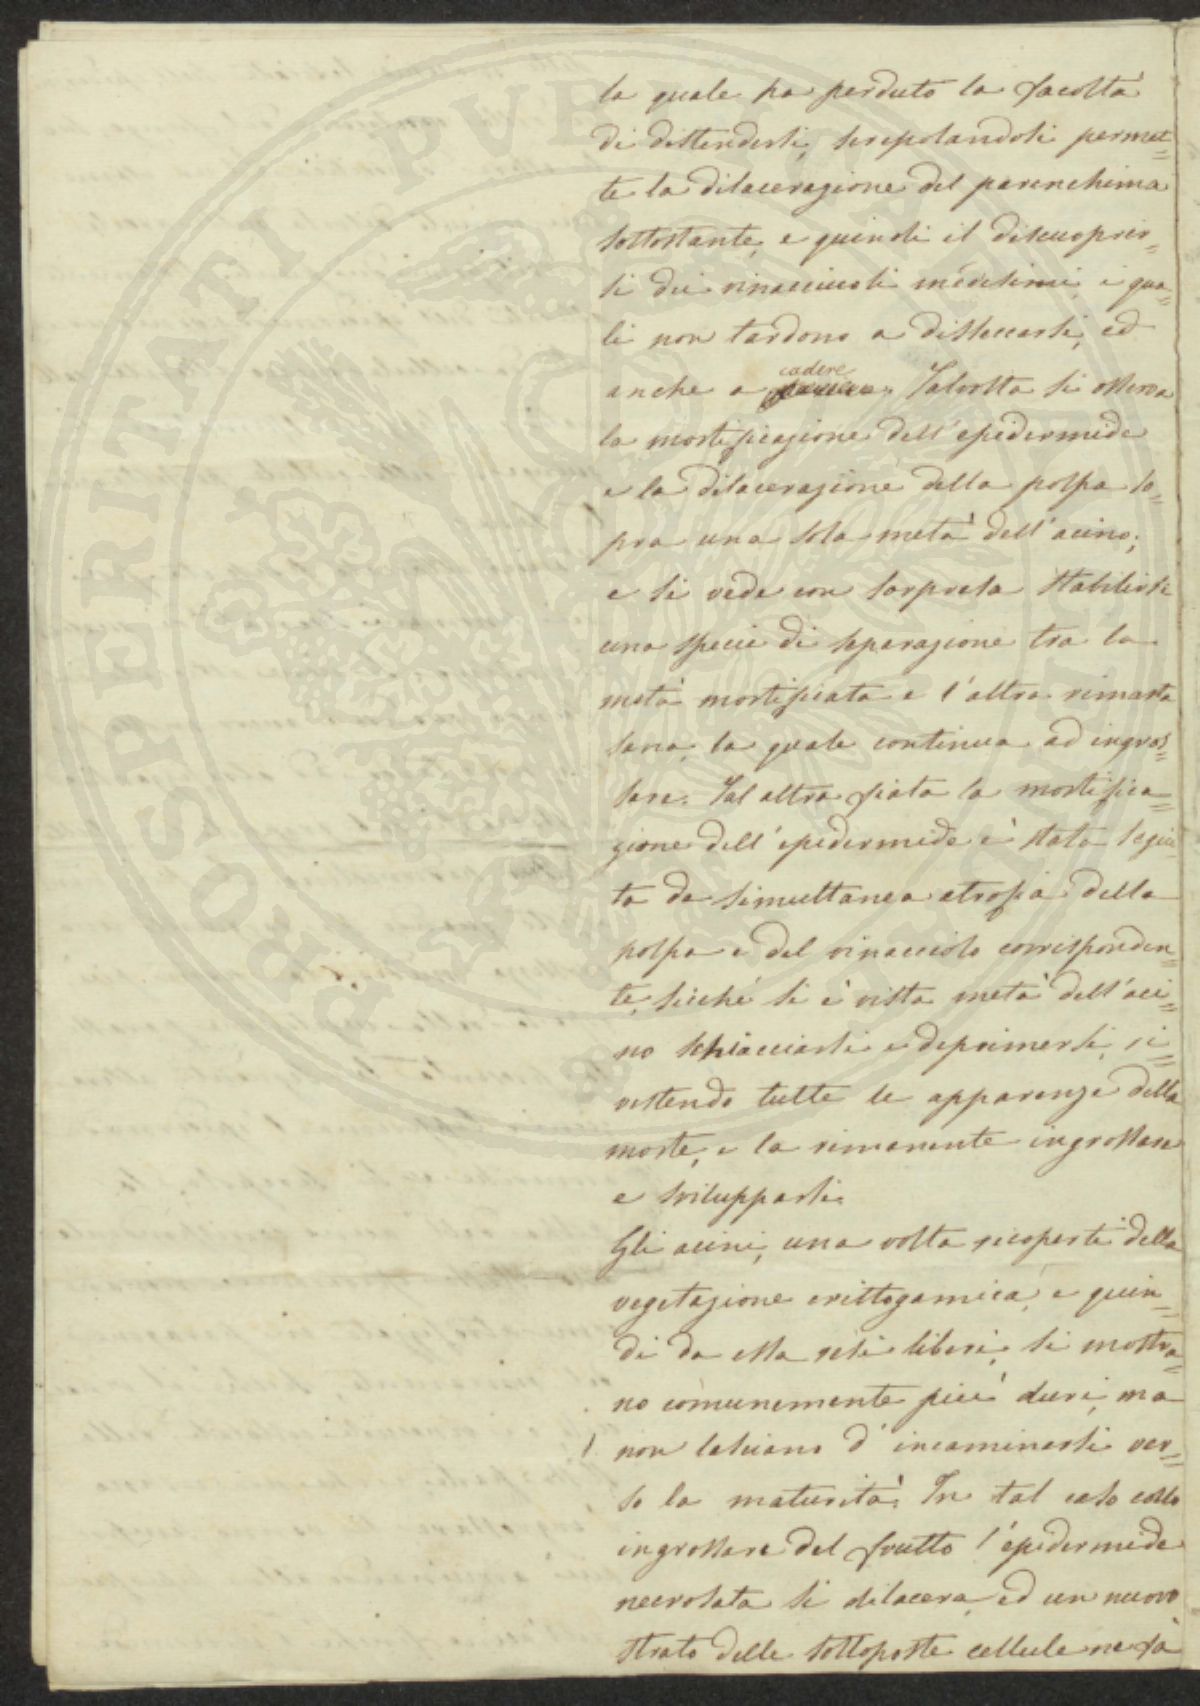 la quale ha perduto la facoltà
di distendersi, screpolandosi permet=
te la dilacerazione del parenchima
sottostante, e quindi il discuoprir=
si dei vinacciuoli medesimi, i qua=
li non tardono a distaccarsi, ed
anche a cadere. Talvolta si osserva
la mortificazione dell'epidermide
e la dilacerazione della polpa so=
pra una sola metà dell'acino;
e si vede con sorpresa stabilirsi
una specie di separazione tra la
metà mortificata e l'altra rimasta
sana, la quale continua ad ingros=
sare. Tal altra fiata la mortifica=
zione dell'epidermide è stata segui=
ta da simultanea atrofia della
polpa e del vinacciolo corrisponden=
te, sicché si è vista metà dell'aci=
no schiacciarsi e deprimersi, ri=
vestendo tutte le apparenze della
morte, e la rimanente ingrossare
e svilupparsi.
Gli acini, una volta ricoperti della
vegetazione crittogamica, e quin=
di da essa resi liberi, si mostra=
no comunemente più duri, ma
non lasciano d'incaminarsi ver=
so la maturità. In tal caso collo
ingrossare del frutto l'epidermide
necrosata si dilacera, ed un nuovo
strato delle sottoposte cellule ne fa
PROSPERITATI PVBLICAE